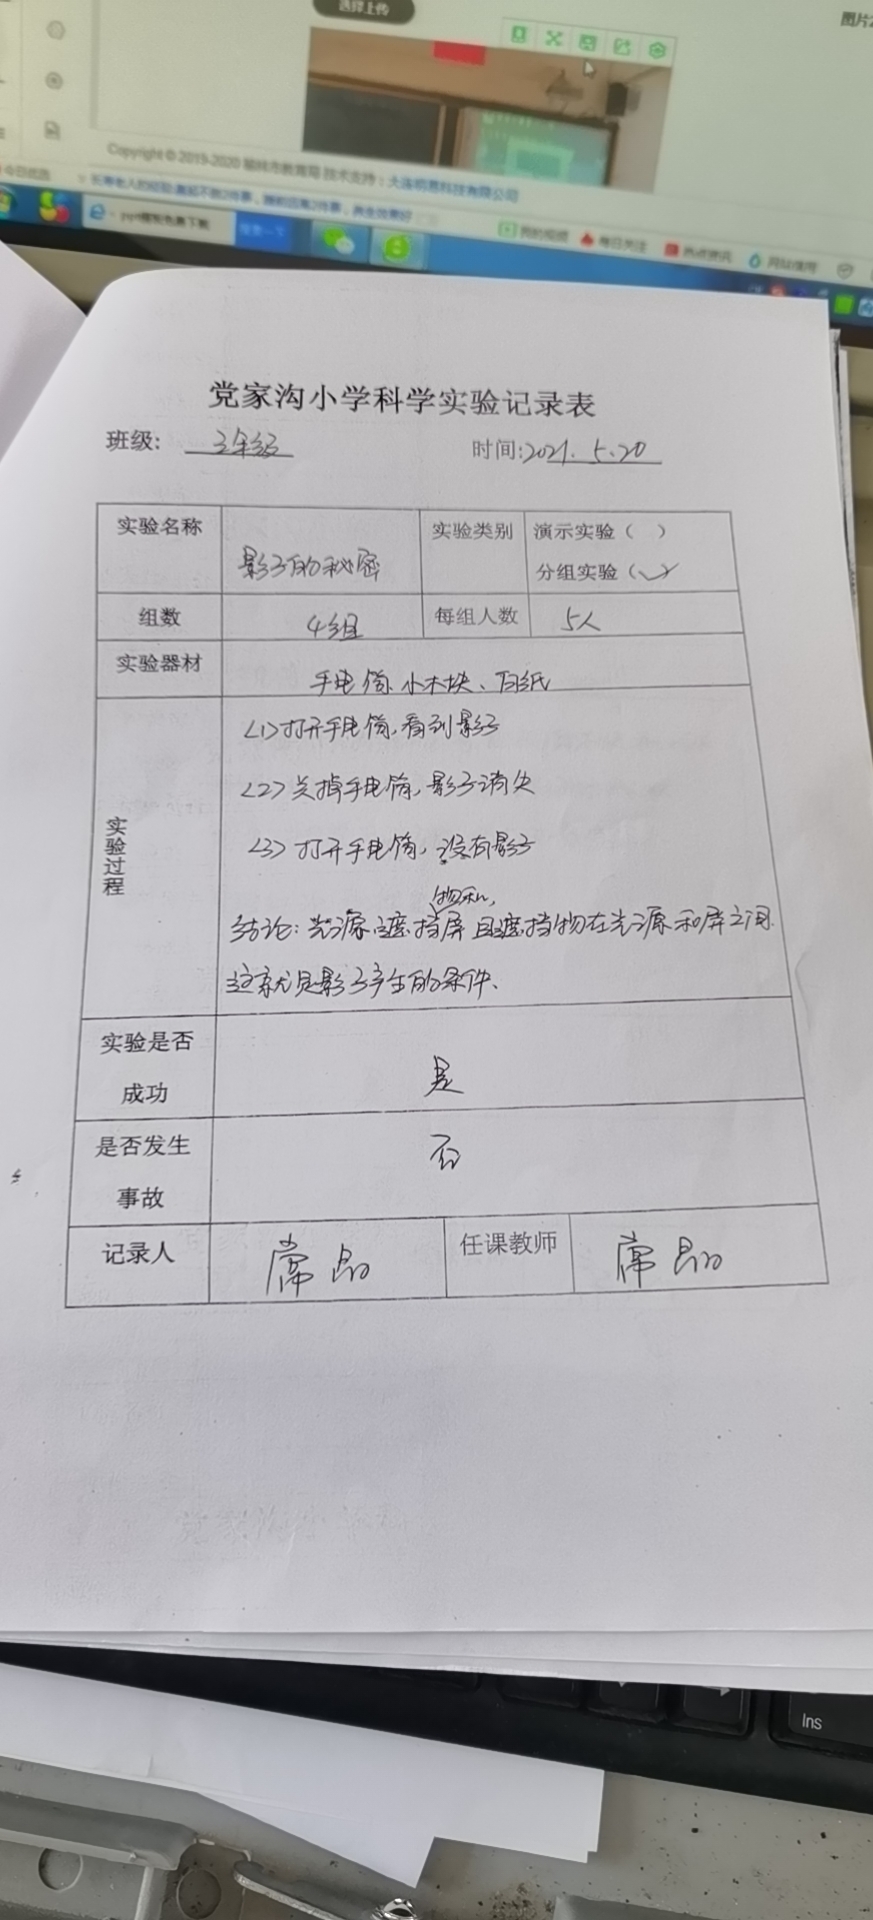 选择上传
图片
Copyright © 2019-2020 榆林市教育局 技术支持：大连明思科技有限公司
今日优选
我的视频
每日关注
热点资讯
党家沟小学科学实验记录表
班级: 三年级 时间:2021.5.20
实验名称 影子的秘密 实验类别 演示实验（ ）
分组实验（✓）
组数 4组 每组人数 5人
实验器材 手电筒、小木块、白纸
实验过程
<1>打开手电筒,看到影子
<2>关掉手电筒,影子消失
<3>打开手电筒,没有影子
物和
结论:光源、遮挡屏且遮挡物在光源和屏之间.
这就是影子产生的条件、
实验是否
成功 是
是否发生
事故 否
记录人 常晶 任课教师 常晶
Ins